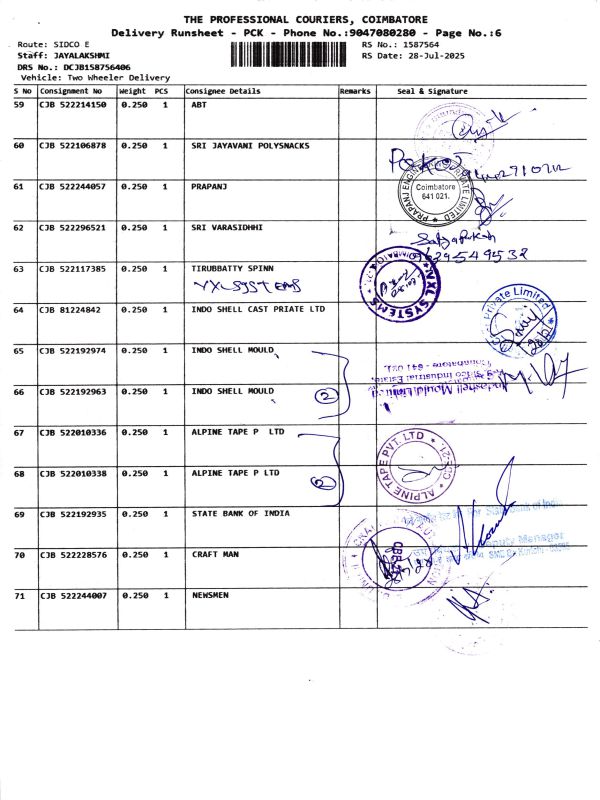 THE PROFESSIONAL COURIERS, COIMBATORE
Delivery Runsheet - PCK - Phone No.:9047080280 - Page No.:6
Route: SIDCO E RS No.: 1587564
Staff: JAYALAKSHMI RS Date: 28-Jul-2025
DRS No.: DCJB158756406
Vehicle: Two Wheeler Delivery
S No Consignment No Weight PCS Consignee Details Remarks Seal & Signature
59 CJB 522214150 0.250 1 ABT
60 CJB 522106878 0.250 1 SRI JAYAVANI POLYSNACKS
61 CJB 522244057 0.250 1 PRAPANJ
PRAPANJ ENGINEERING PRIVATE LIMITED
Coimbatore
641 021.
62 CJB 522296521 0.250 1 SRI VARASIDHHI
9629549532
63 CJB 522117385 0.250 1 TIRUBBATTY SPINN
VXL SYSTEMS
VXL SYSTEMS
64 CJB 81224842 0.250 1 INDO SHELL CAST PRIATE LTD
Private Limited
65 CJB 522192974 0.250 1 INDO SHELL MOULD
66 CJB 522192963 0.250 1 INDO SHELL MOULD
2
Indoshell Mould Limited
Industrial Estate,
Coimbatore - 641 021.
67 CJB 522010336 0.250 1 ALPINE TAPE P LTD
68 CJB 522010338 0.250 1 ALPINE TAPE P LTD
2
ALPINE TAPE PVT. LTD
CBE-21.
69 CJB 522192935 0.250 1 STATE BANK OF INDIA
For State Bank of India
Deputy Manager
70 CJB 522228576 0.250 1 CRAFT MAN
71 CJB 522244007 0.250 1 NEWSMEN